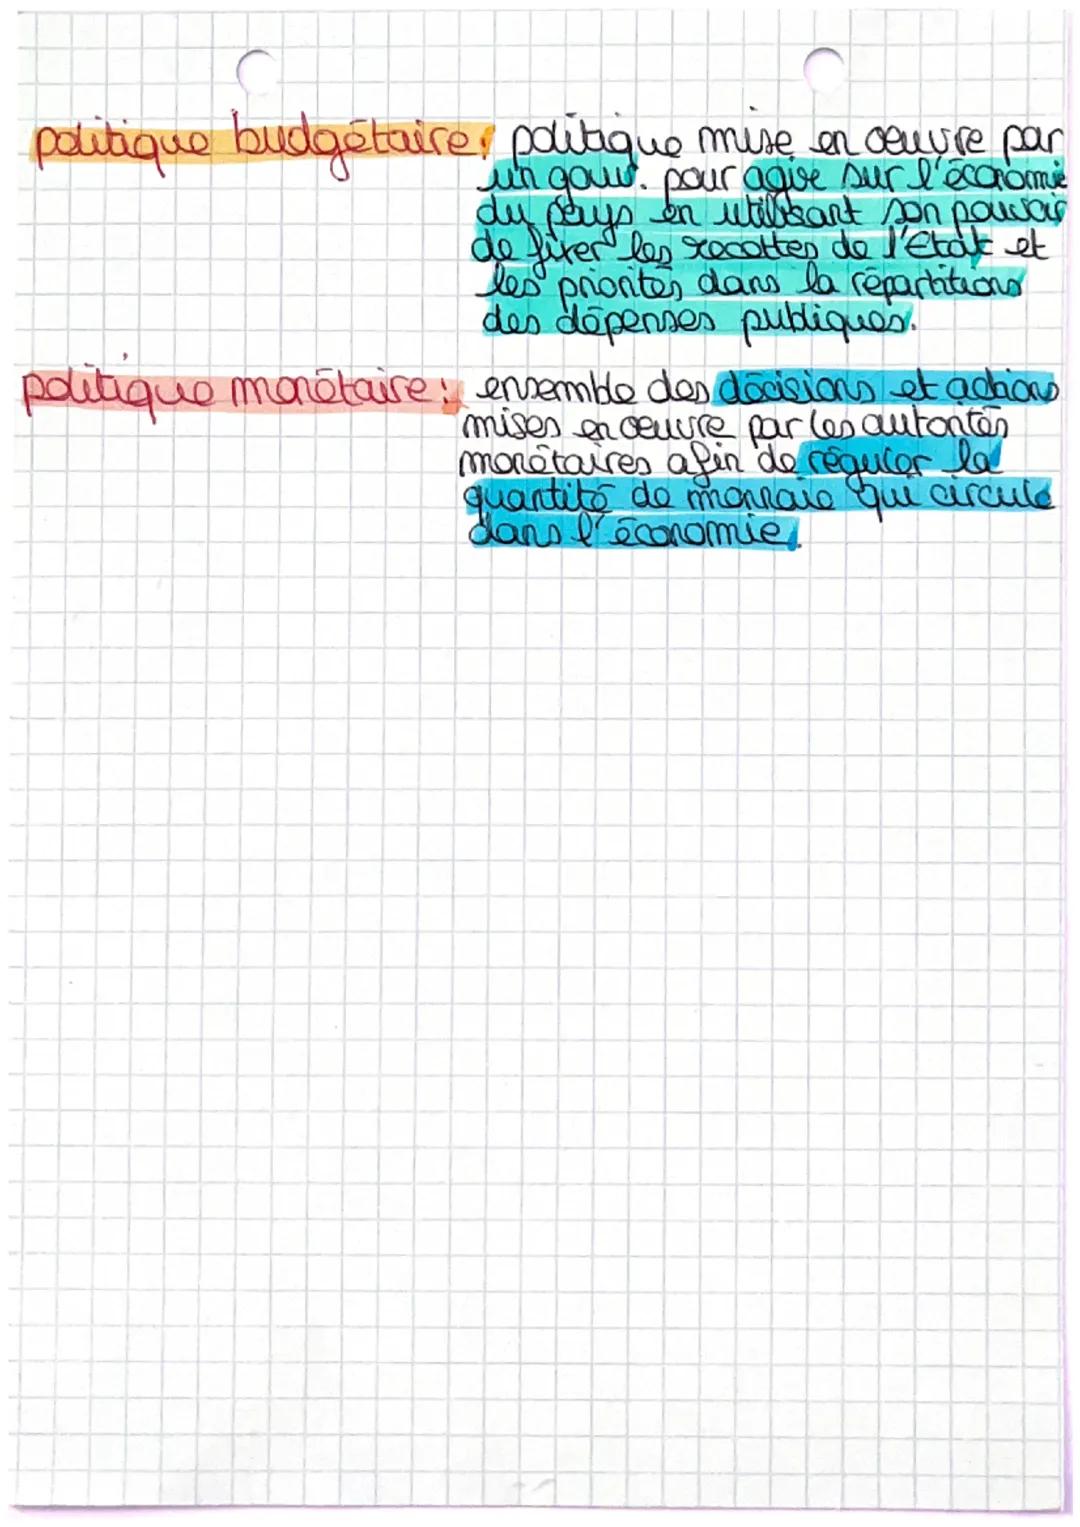 politique budgétaire: politique mise en œuvre par
un gouv. pour agire sur l'économie
du pays en utilisant son pouvoir
de fixer les recettes de l'Etat et
les priorités dans la répartitions
des dépenses publiques.
politique monétaire: ensemble des décisions et actions
mises en œuvre par les autorités
monétaires afin de réguler la
quantité de monnaie qui circule
dans l'économie.